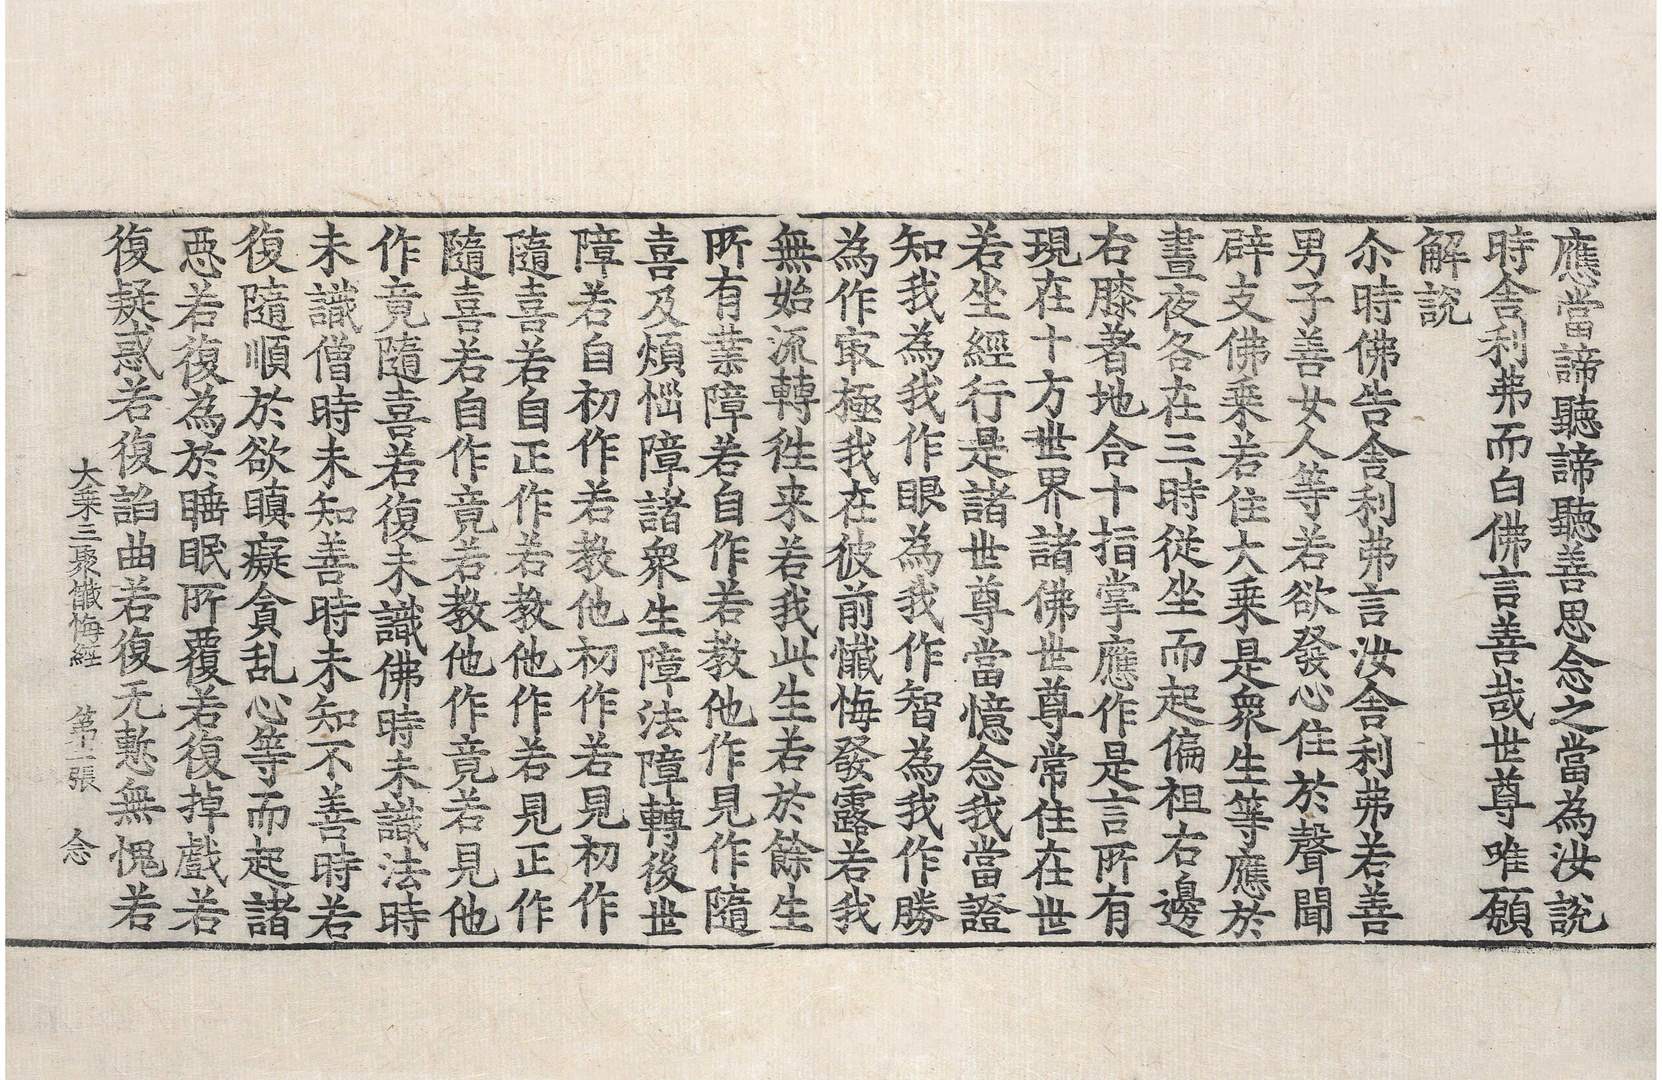 應當諦聽諦聽善思念之當為汝說
時舎利弗而白佛言善哉世尊唯願
解說
尒時佛告舎利弗言汝舎利弗若善
男子善女人等若欲發心住於聲聞
辟支佛乗若住大乗是衆生等應於
晝夜各在三時從坐而起偏袒右邊
右膝著地合十指掌應作是言所有
現在十方世界諸佛世尊常住在世
若坐經行是諸世尊當憶念我當證
知我為我作眼為我作智為我作勝
為作㝡極我在彼前懺悔發露若我
無始流轉徃来若我此生若於餘生
所有業障若自作若教他作見作隨
喜及煩惱障諸衆生障法障轉後世
障若自初作若教他初作若見初作
隨喜若自正作若教他作若見正作
隨喜若自作竟若教他作竟若見他
作竟隨喜若復未識佛時未識法時
未識僧時未知善時未知不善時若
復隨順於欲瞋癡貪乱心等而起諸
惡若復為於睡眠所覆若復掉戲若
復疑惑若復諂曲若復无慙無愧若
大乗三聚懺悔經　第二張　念